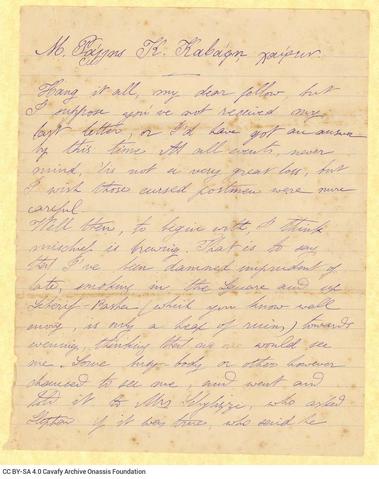 M. Ράλλης Κ. Καβάφη χαίρειν.
Hang it all, my dear fellow but
I suppose you've not received my
last letter, or I'd have got an answer
by this time. At all events, never
mind, 'tis not a very great loss, but
I wish those cursed postmen were more
careful.
Well then, to begin with, I think
mischief is brewing. That is to say
that I've been damned imprudent of
late, smoking in the Square and
Scherif-Pasha (which you know well
enough, is only a heap of ruins,) towards
evening, thinking that no one would see
me. Some busy body or other however
chanced to see me, and went and
told it to Mrs who asked
Stephen if it was true, who said he
CC BY-SA 4.0 Cavafy Archive Onassis Foundation